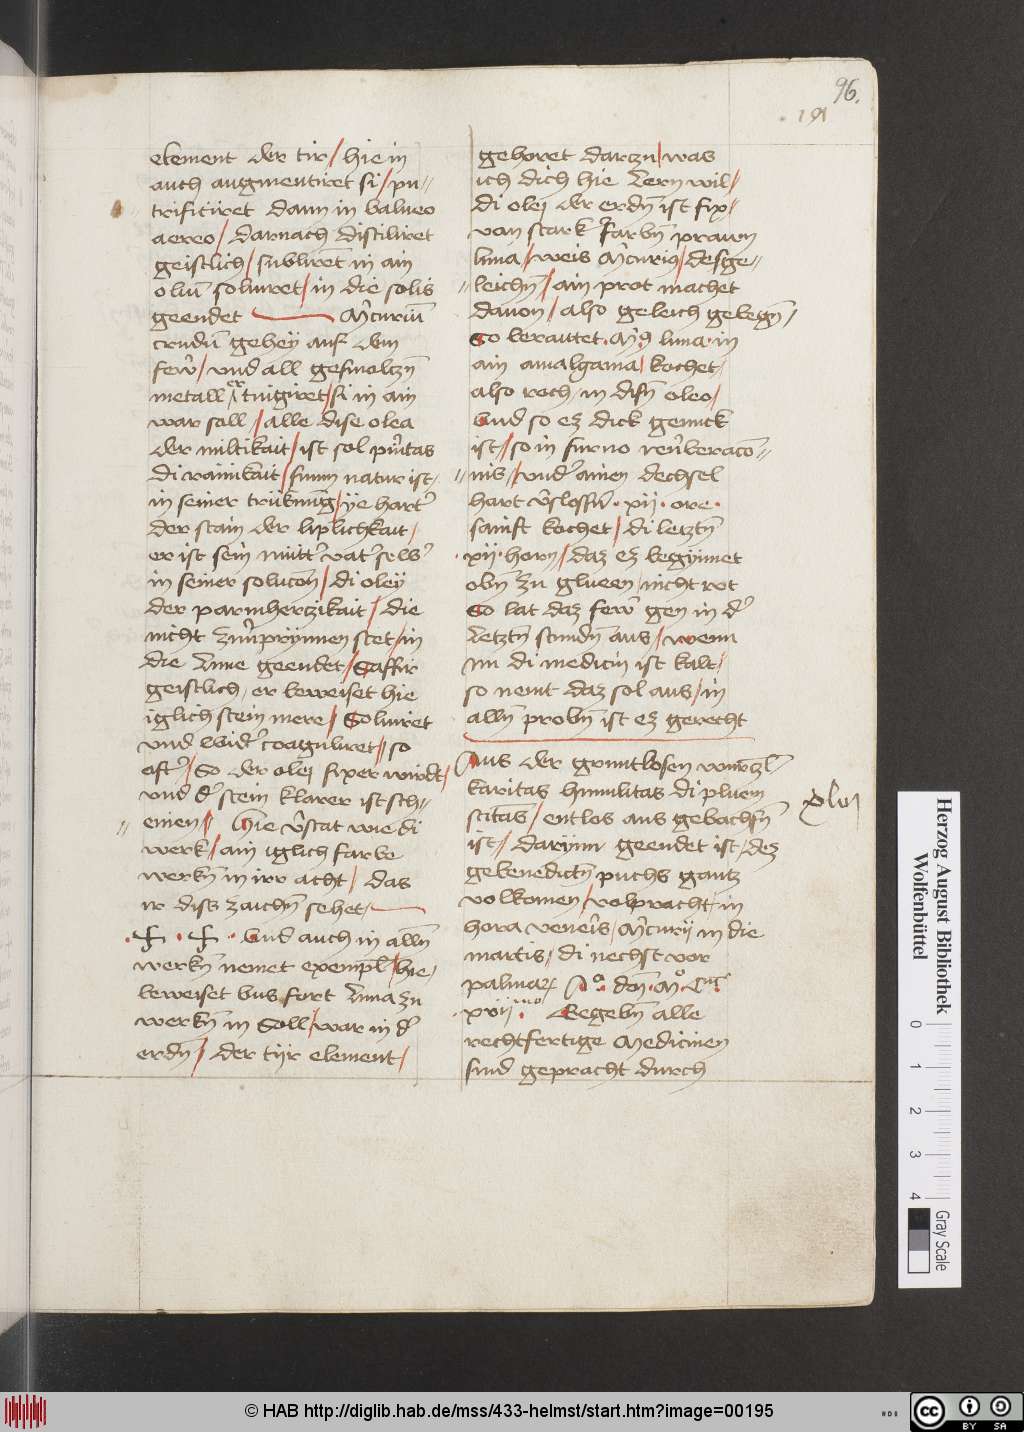 96.
191
element der tir / hie in
auch augmentiret si / pu-
trificiret dann in balneo
aereo / darnach distiliret
geistlich / subliret in ain
oliu solviret / in die solis
geendet — Mcuriu
crudu gehey auf dem
few / und all gesmoltzn
metall er tingiret / si in ain
war soll / alle dise olea
der miltikait / ist sol puritas
di rainikait / sunn natur ist
in seiner trüknug / ye hart
der stain der liplichkait /
er ist sein mütt vat selb
in seiner solucon / di oley
der parmhertzikait / die
nicht prynnen stet / in
die lune geendet / Saffir
geistlich er beweiset hie
iglich stein mere / Solviret
vnd wid coaguliret // so
oft / So der olei fixer wirdt /
vnd d stein klarer ist sch-
einen // Hie vstat wie di
werk / ain iglich farbe
werkn in irr acht / das
ir diss zaichn sehet —
Vnd auch in alln
werkn nemet exempl / hie /
beweiset vns fort luna zu
werkn in Soll / war in d
erdn / der tyr element /
gehoret darzu / was
ich dich hie lern wil /
di olei der erdn ist fix /
van stark farbn prawn
luna / weis Mcurius / desge-
leichn / ain prot machet
davon / also geleich gelegn /
So berauttet Mc luna in
ain amalgama / kochet
also roch in disn oleo /
Vnd so ez dick genuck
ist / so in furno reuberaco-
nis / vnd ainen dechsel
hart vslossn · xij · ore ·
sanft kochet / di letztn
· xij · horn / daz ez begynnet
obn zu glueen / nicht rot
So lat daz few gen in d
letztn stundn aus / wenn
nu di medicin ist kalt /
so nemt daz sol aus / in
alln probn ist ez gerecht
Aus der gruntlosen wurtzl
karitas humilitas di pluem
scitas / entlos aus gebachsn
ist / darynn geendet ist / dez
gebenedictn puchs gantz
volkomen / volpracht in
hora veneris / Mcurij in die
martis / di nechst vor
palmar Ao · dni · Mo ·
xvij mo Begebn alle
rechtfertige Medicinen
sind gepracht durch
Herzog August Bibliothek
Wolfenbüttel
0 1 2 3 4
Gray Scale
© HAB http://diglib.hab.de/mss/433-helmst/start.htm?image=00195
BY SA